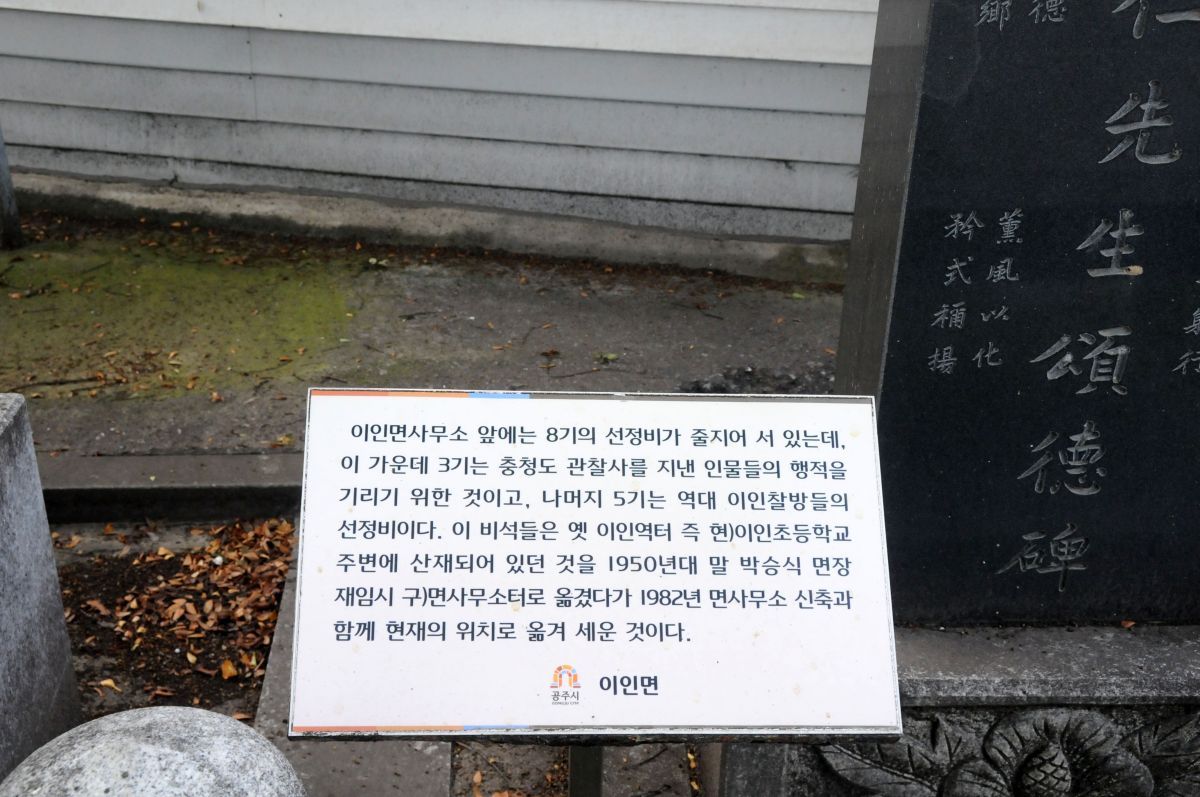 이인면사무소 앞에는 8기의 선정비가 줄지어 서 있는데,
이 가운데 3기는 충청도 관찰사를 지낸 인물들의 행적을
기리기 위한 것이고, 나머지 5기는 역대 이인찰방들의
선정비이다. 이 비석들은 옛 이인역터 즉 현)이인초등학교
주변에 산재되어 있던 것을 1950년대 말 박승식 면장
재임시 구)면사무소터로 옮겼다가 1982년 면사무소 신축과
함께 현재의 위치로 옮겨 세운 것이다.
공주시 이인면
先生頌德碑
薰風以化
矜式稱揚
德
鄉
行